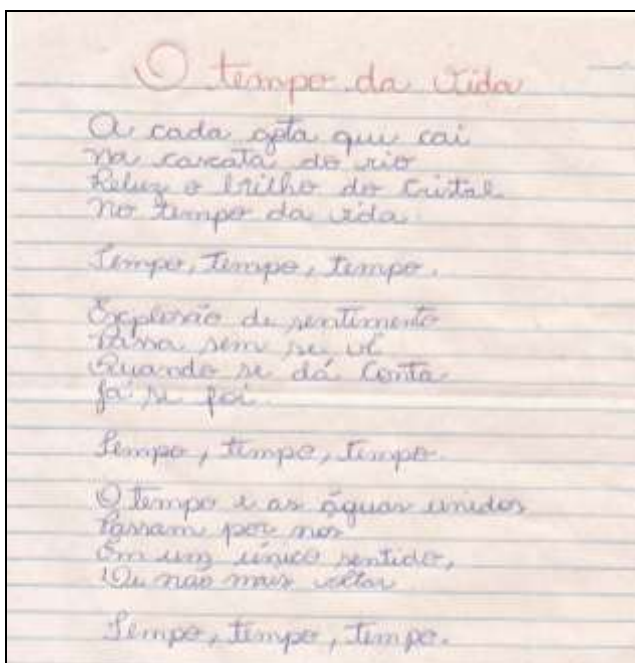 O tempo da vida
A cada gota que cai
na cascata do rio
Reluz o brilho do cristal
no tempo da vida.
Tempo, tempo, tempo.
Explosão de sentimento
Passa sem se vê
Quando se dá conta
já se foi.
Tempo, tempo, tempo.
O tempo e as águas unidos
Passam por nos
Em um único sentido,
Ou não mais voltar
Tempo, tempo, tempo.